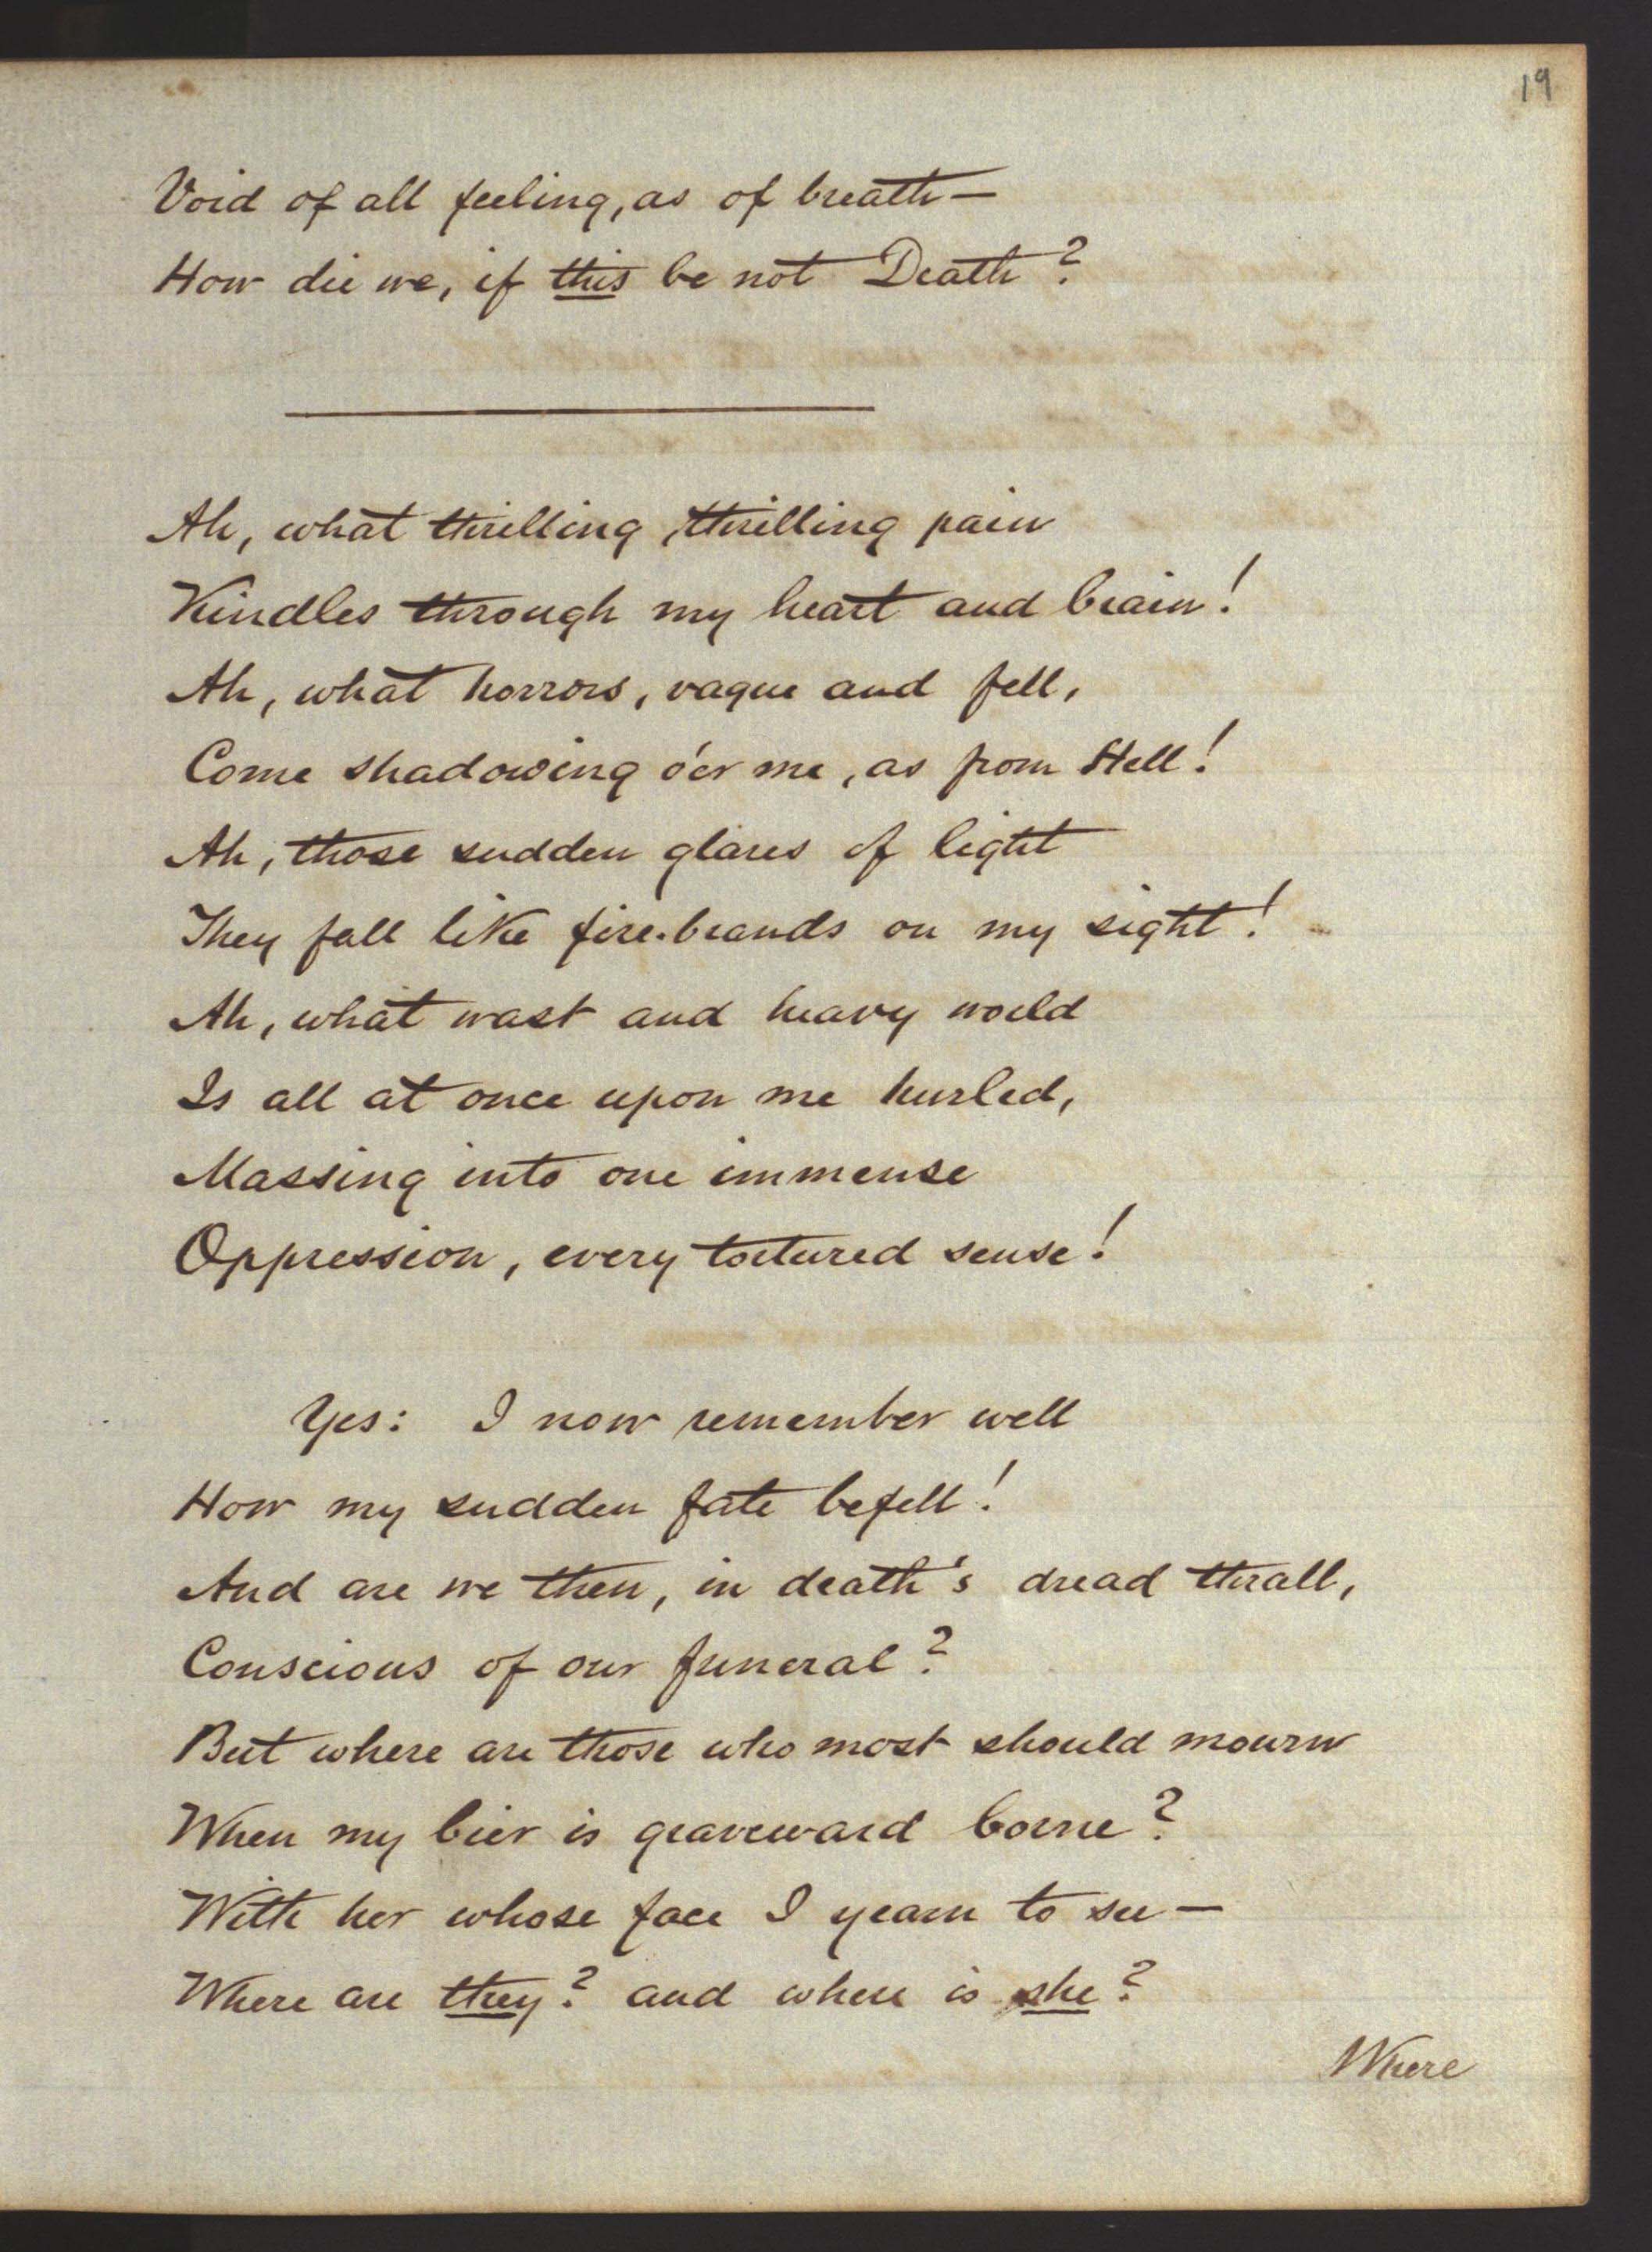 19
Void of all feeling, as of breath—
How die we, if this be not Death?
Ah, what thrilling, thrilling pain
Kindles through my heart and brain!
Ah, what horrors, vague and fell,
Come shadowing o'er me, as from Hell!
Ah, those sudden glares of light
They fall like fire-brands on my sight!
Ah, what wast and heavy world
Is all at once upon me hurled,
Massing into one immense
Oppression, every tortured sense!
Yes: I now remember well
How my sudden fate befell!
And are we then, in death's dread thrall,
Conscious of our funeral?
But where are those who most should mourn
When my bier is graveward borne?
With her whose face I yearn to see—
Where are they? and where is she?
Where